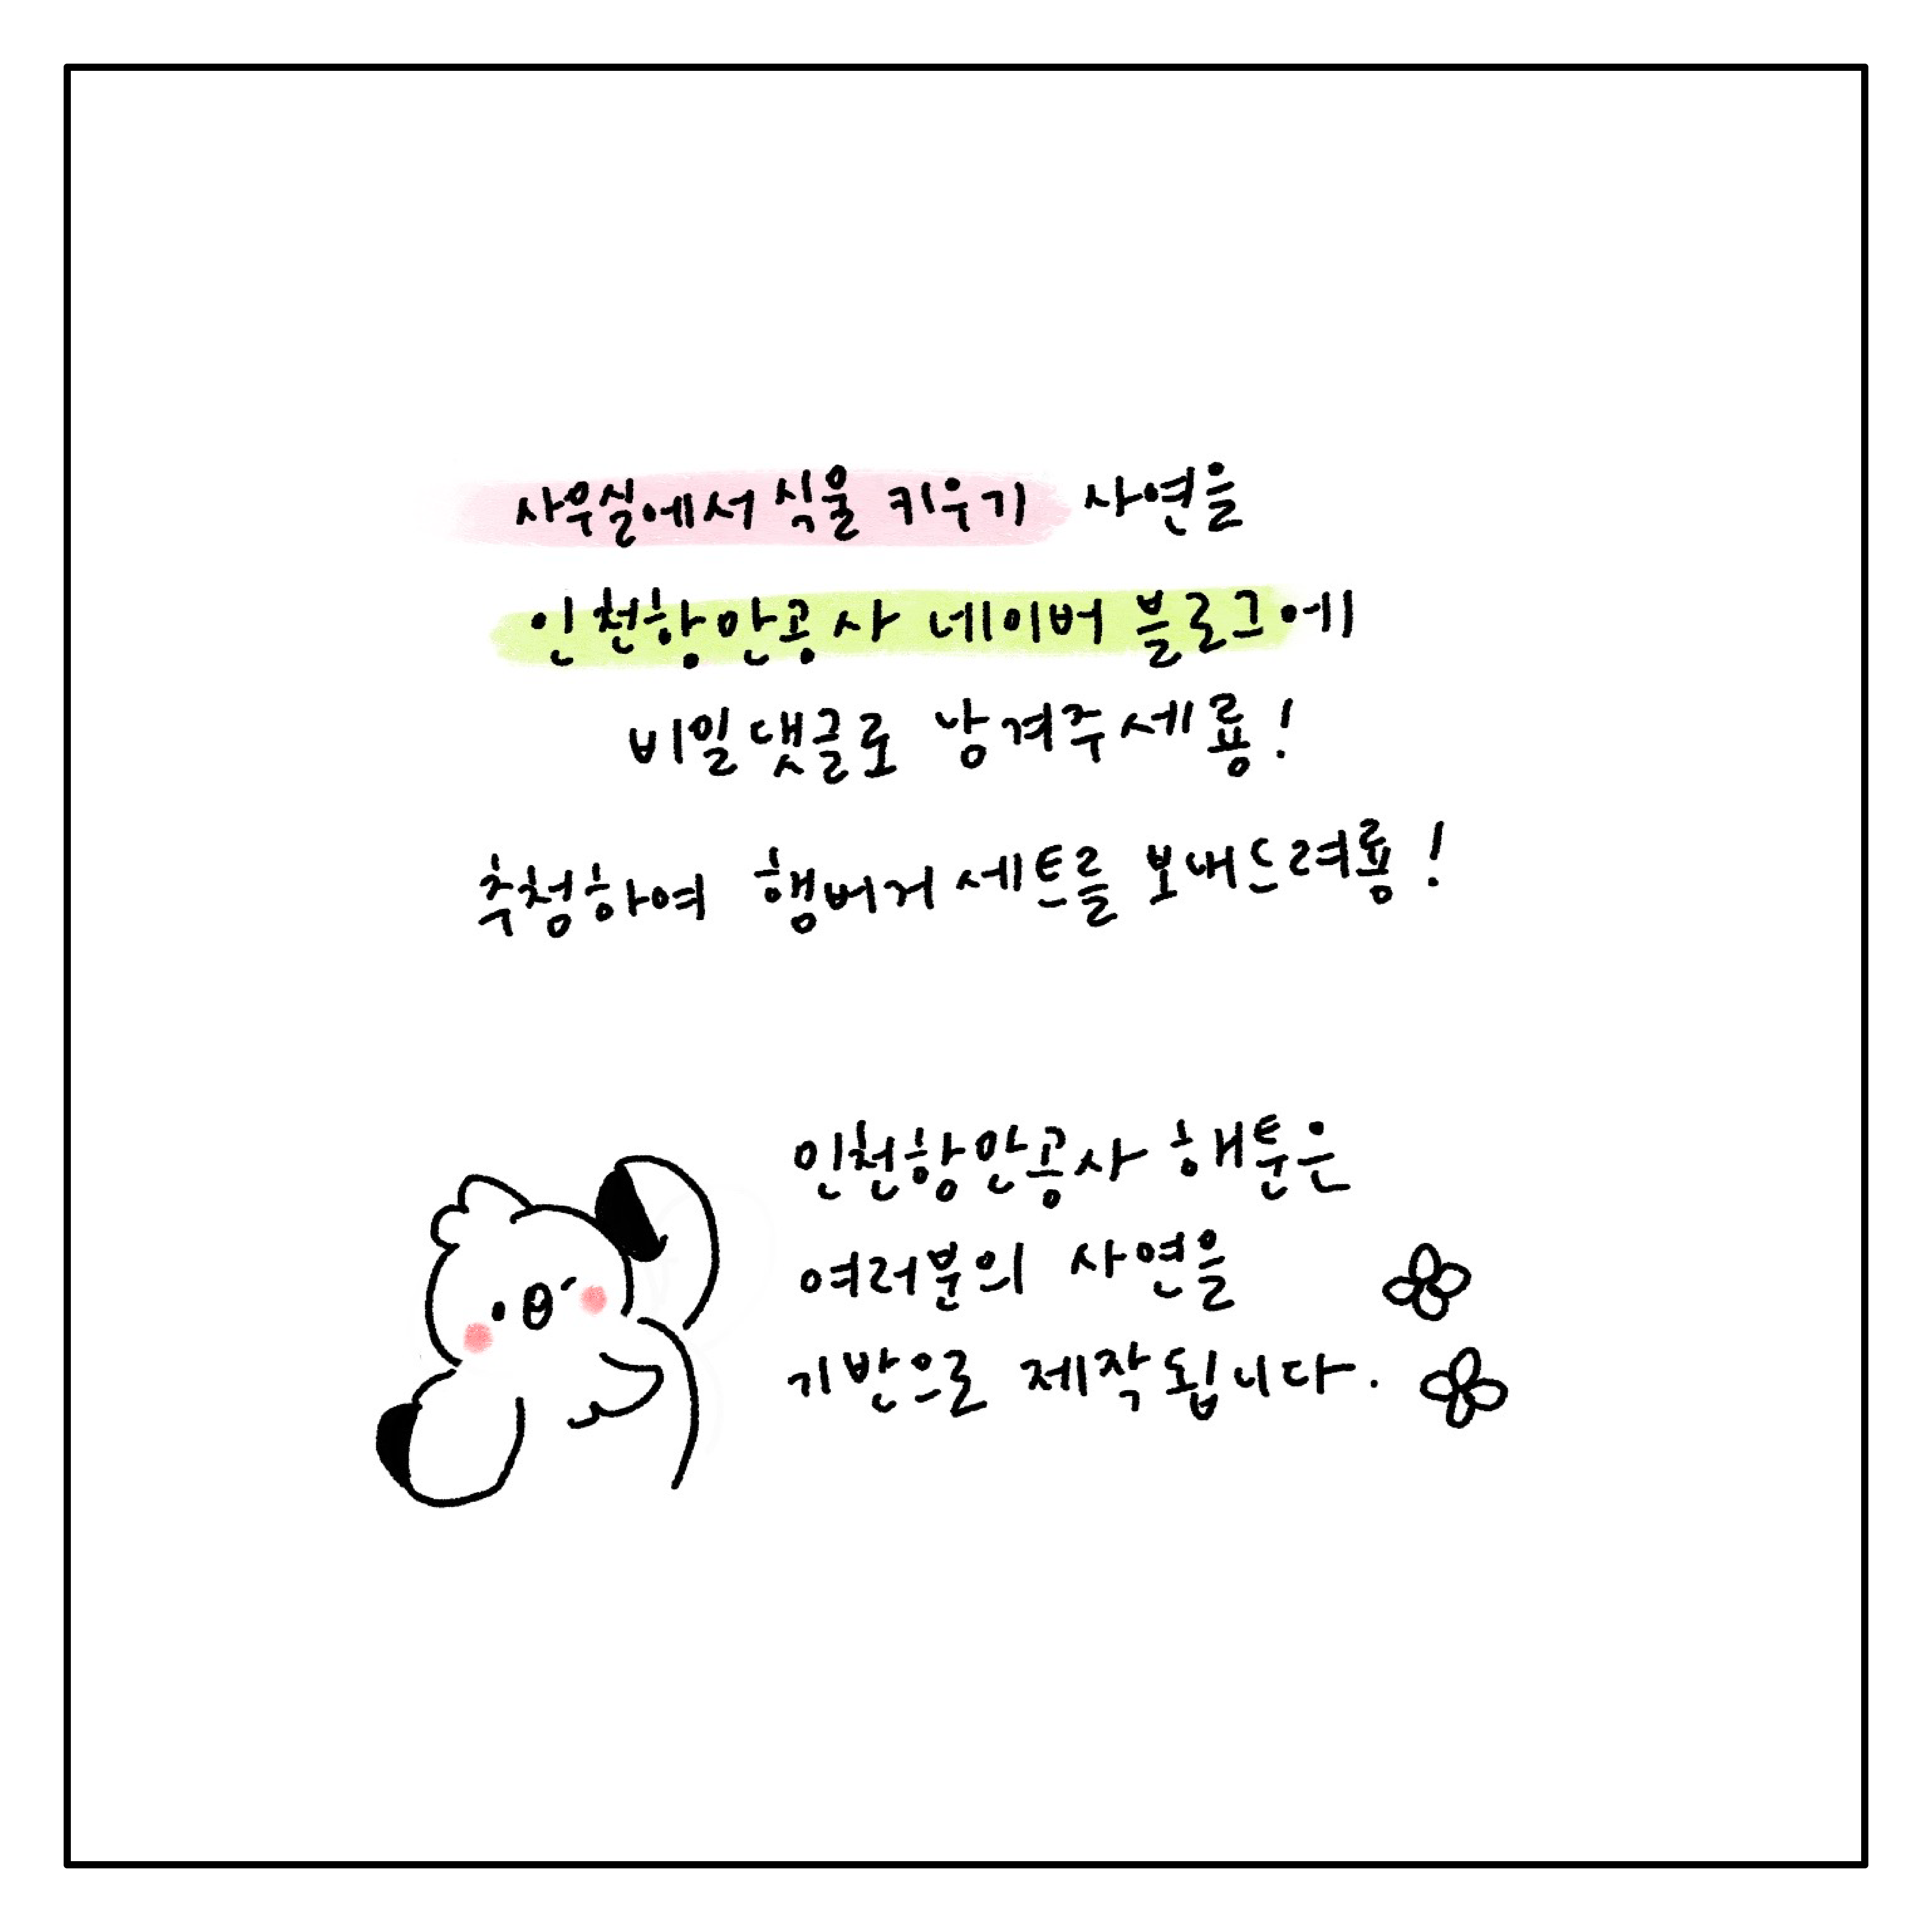 사무실에서 식물 키우기 사연을
인천항만공사 네이버 블로그에
비밀댓글로 남겨주세룡!
추첨하여 햄버거세트를 보내드려룡!
인천항만공사 해툰은
여러분의 사연을
기반으로 제작됩니다.